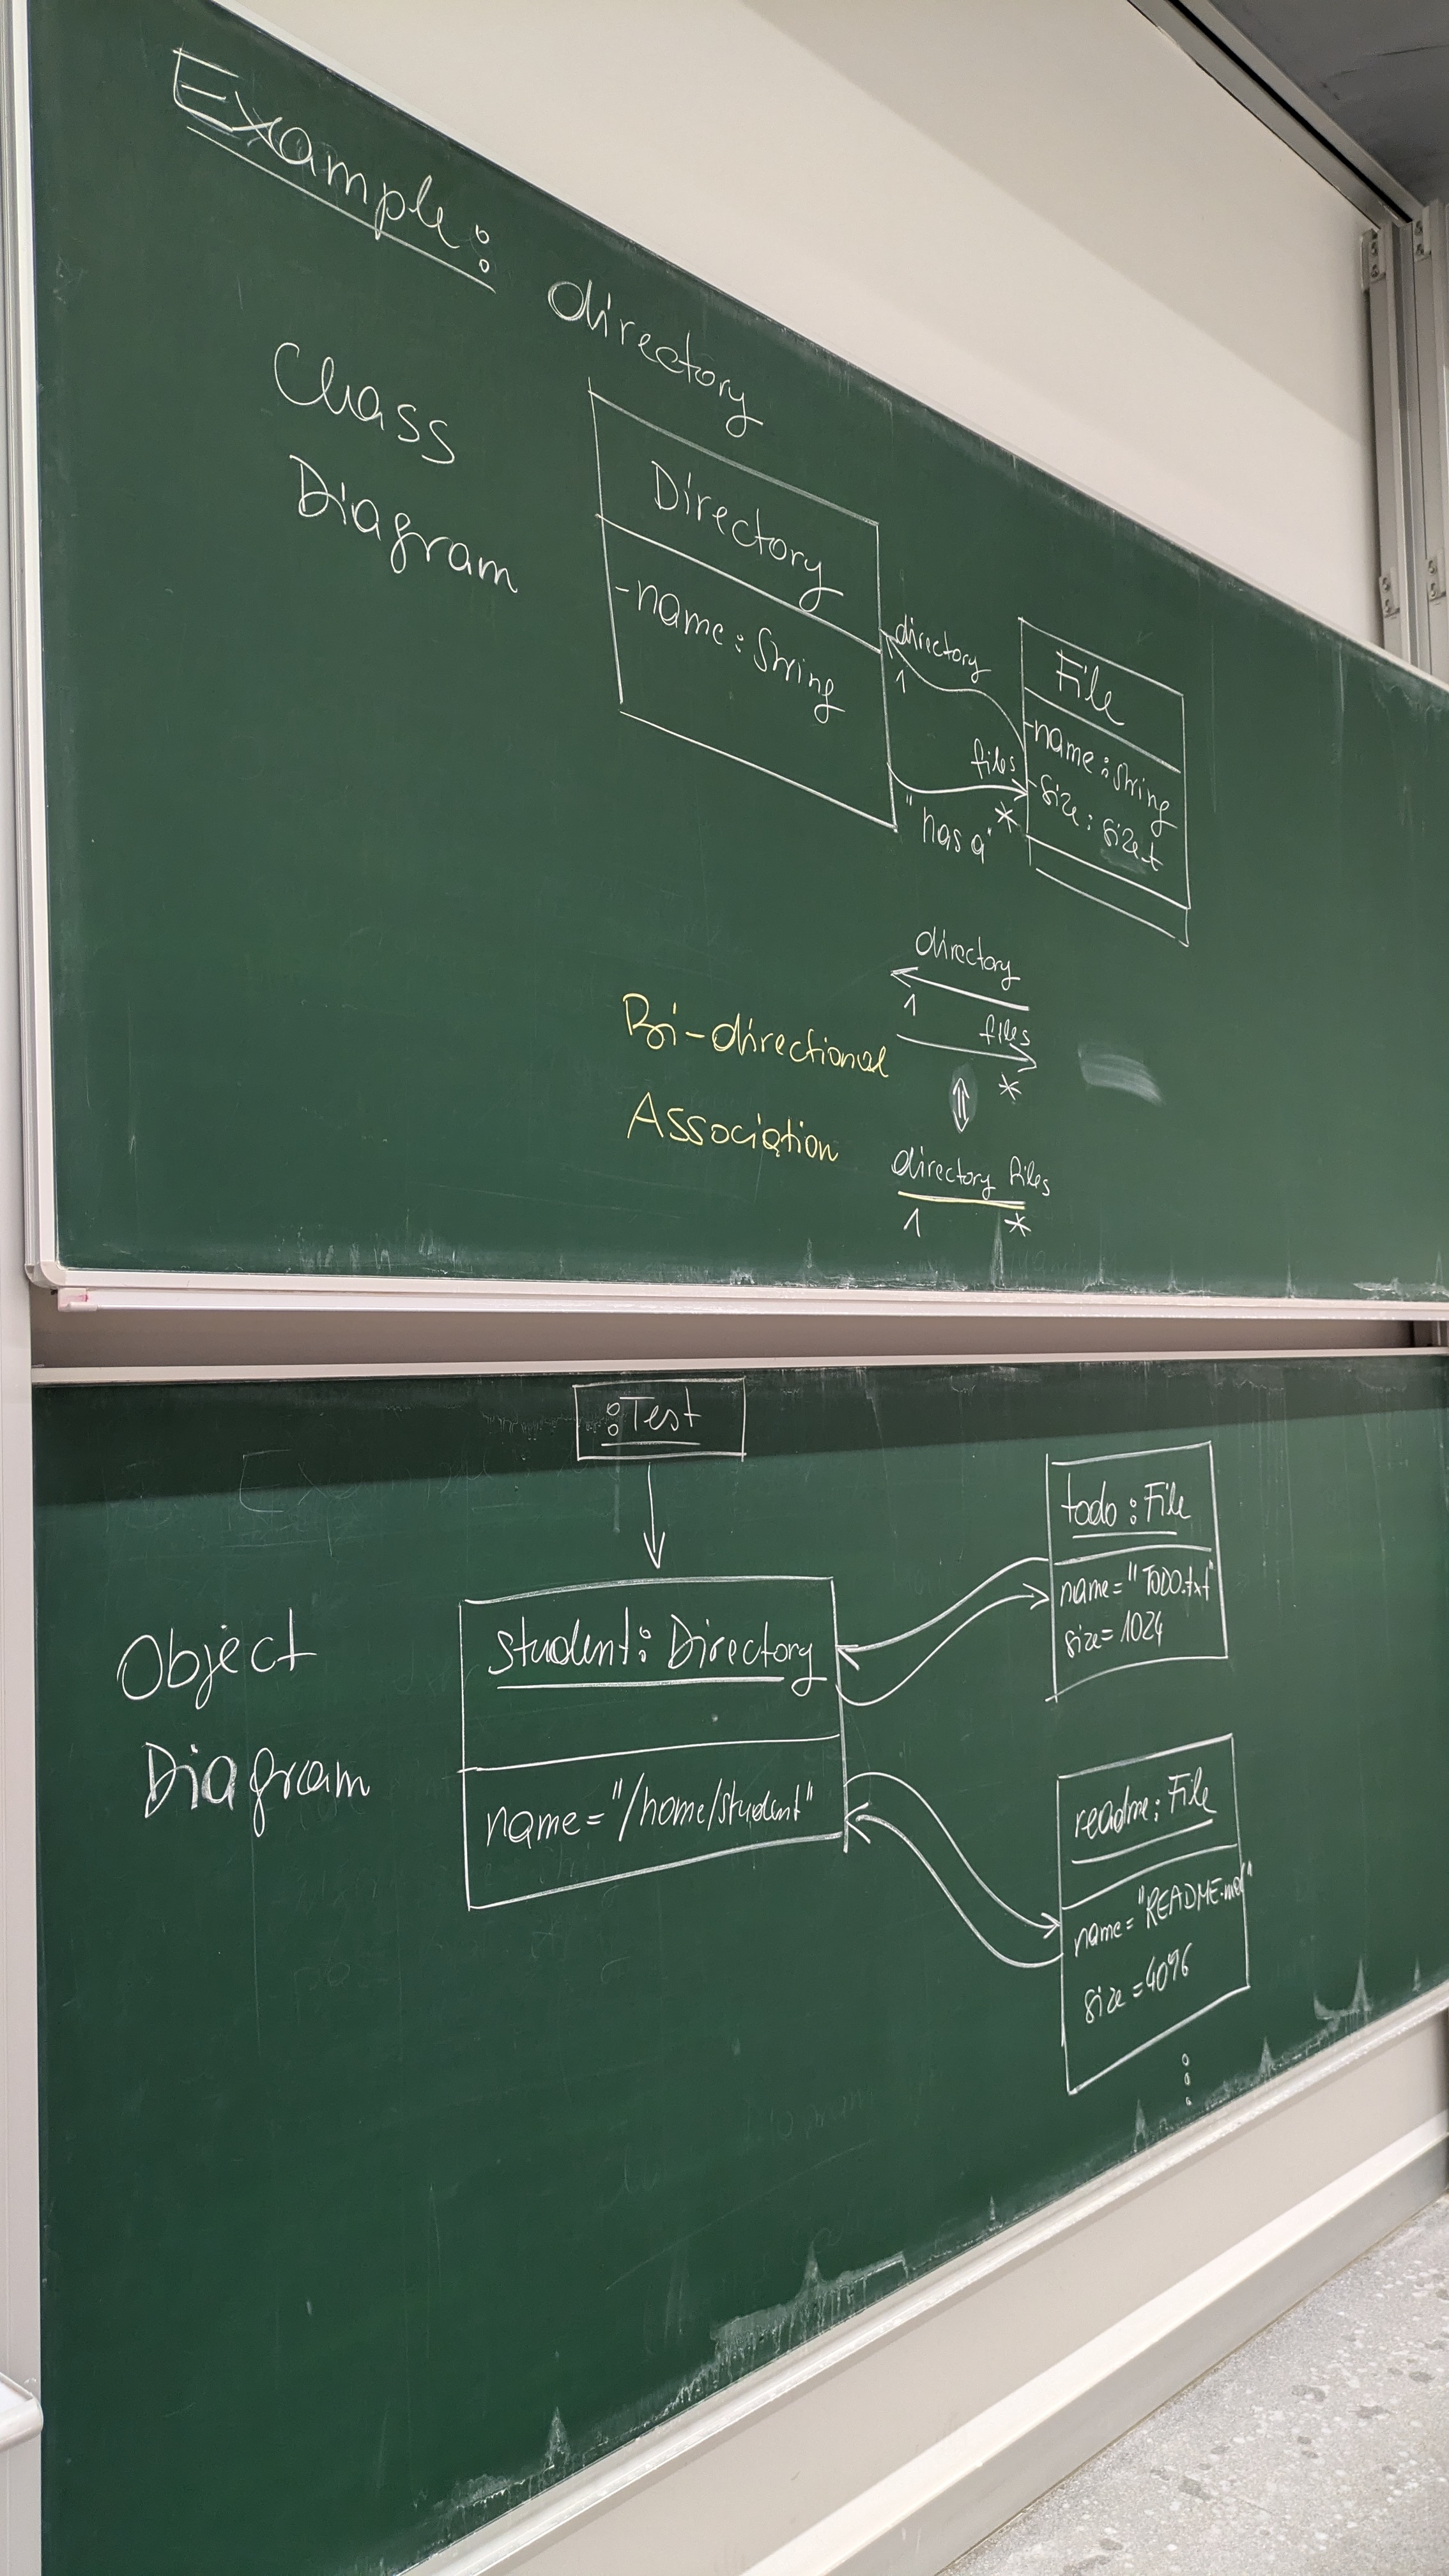 Example: directory
Class
Diagram
Directory
-name: String
directory
1
files
*
"has a"
File
-name: String
-size: size_t
Bi-directional
Association
directory
1
files
*
directory files
1 *
:Test
Object
Diagram
student: Directory
name="/home/student"
todo: File
name="TODO.txt"
size=1024
readme: File
name="README.md"
size=4096